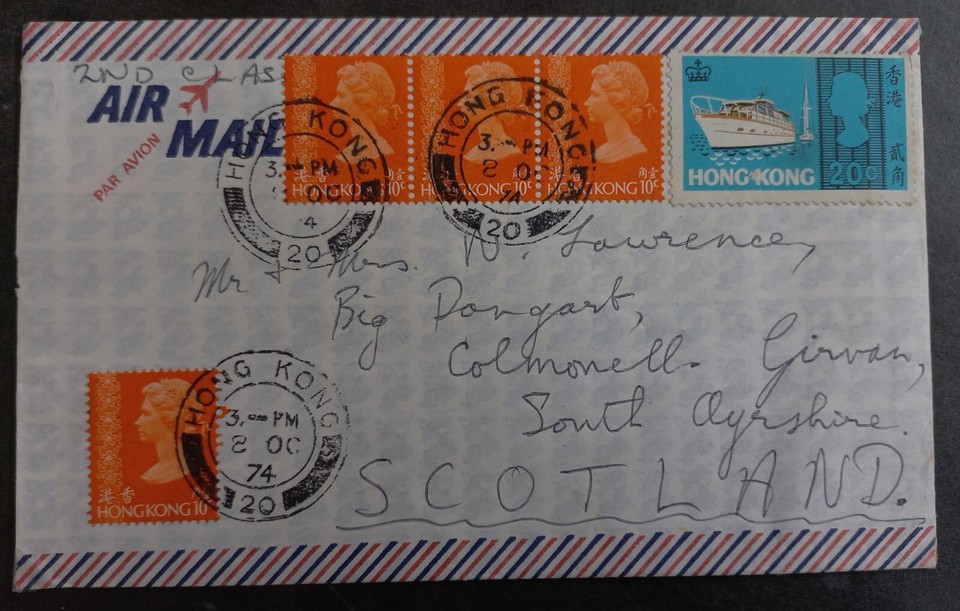 2ND CLASS
AIR MAIL
PAR AVION
HONG KONG
3.— PM
OC
4
20
港香 角壹
HONG KONG 10c
HONG KONG
3.— PM
2 OC
74
20
港香 角壹
HONG KONG 10c
港香 角壹
HONG KONG 10c
香港
貳角
HONG KONG 20c
Mr & Mrs. N. Lawrence,
Big Pangart,
Colmonell. Girvan,
South Ayrshire.
SCOTLAND.
港香
HONG KONG 10
HONG KONG
3.— PM
2 OC
74
20